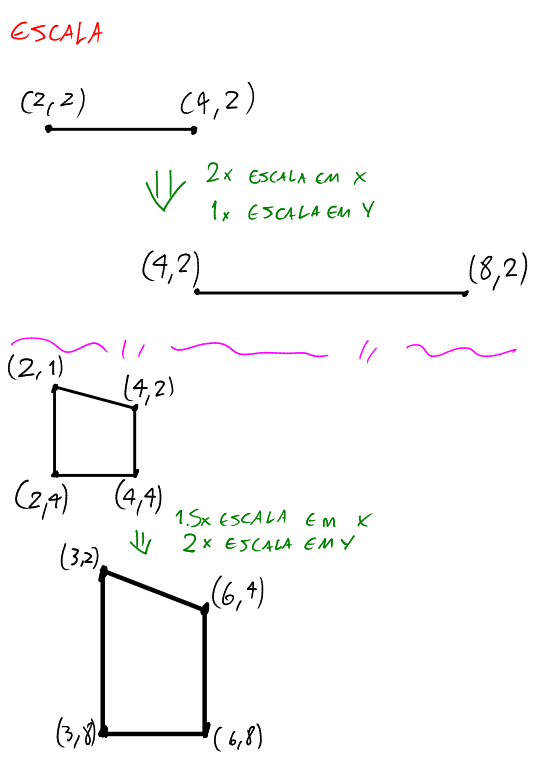 ESCALA
(2,2) (4,2)
2x ESCALA EM X
1x ESCALA EM Y
(4,2) (8,2)
(2,1)
(4,2)
(2,4) (4,4)
1.5x ESCALA EM X
2x ESCALA EM Y
(3,2)
(6,4)
(3,8) (6,8)